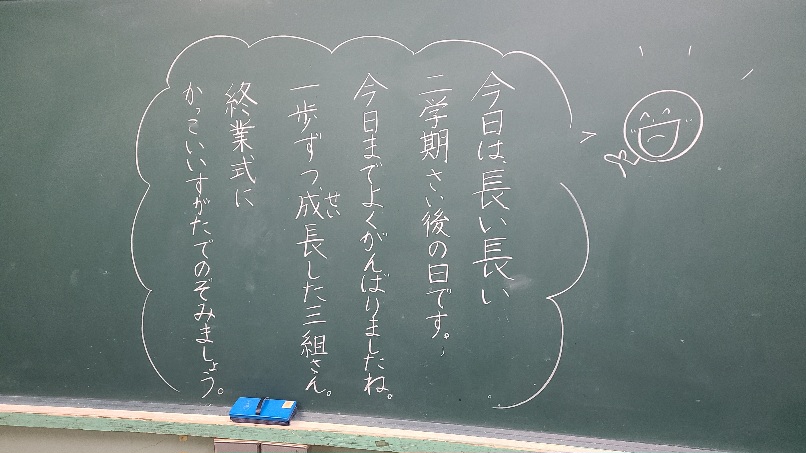 今日は、長い長い
二学期さい後の日です。
今日までよくがんばりましたね。
一歩ずつ成長した三組さん。
せい
終業式に
かっこいいすがたでのぞみましょう。